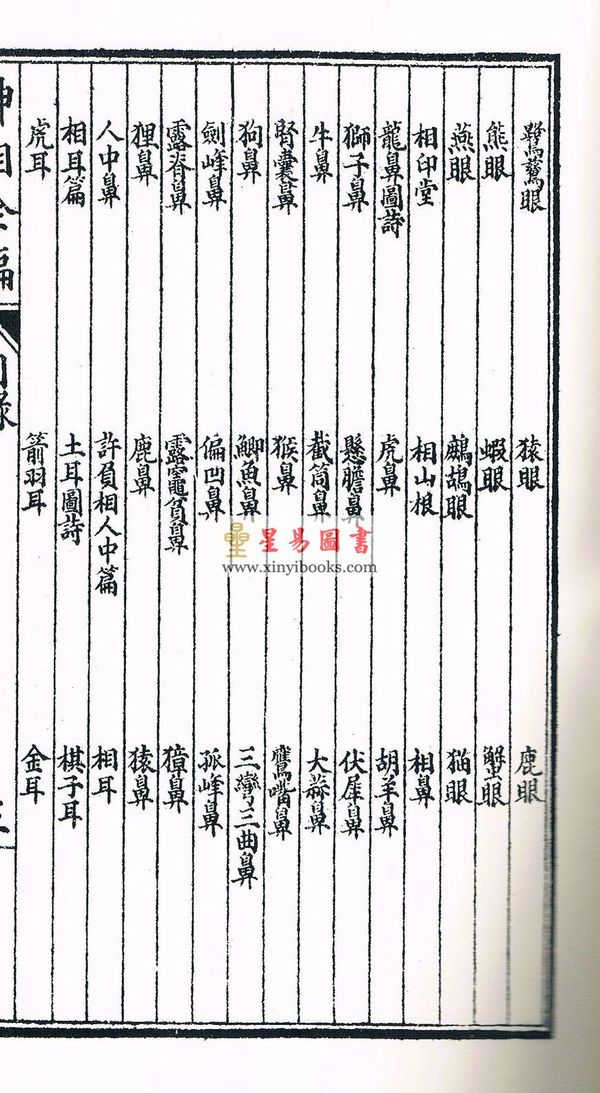 鷺鷥眼 猿眼 鹿眼
熊眼 蝦眼 蟹眼
燕眼 鷓鴣眼 猫眼
相印堂 相山根 相鼻
龍鼻圖詩 虎鼻 胡羊鼻
獅子鼻 懸膽鼻 伏犀鼻
牛鼻 截筒鼻 大蒜鼻
腎囊鼻 猴鼻 鷹嘴鼻
狗鼻 鯽魚鼻 三彎三曲鼻
劍峰鼻 偏凹鼻 孤峰鼻
露脊鼻 露竈貧鼻 獐鼻
狸鼻 鹿鼻 猿鼻
人中鼻 許負相人中篇 相耳
相耳篇 土耳圖詩 棋子耳
虎耳 箭羽耳 金耳
神相全編 目錄 三
星易圖書
www.xinyibooks.com